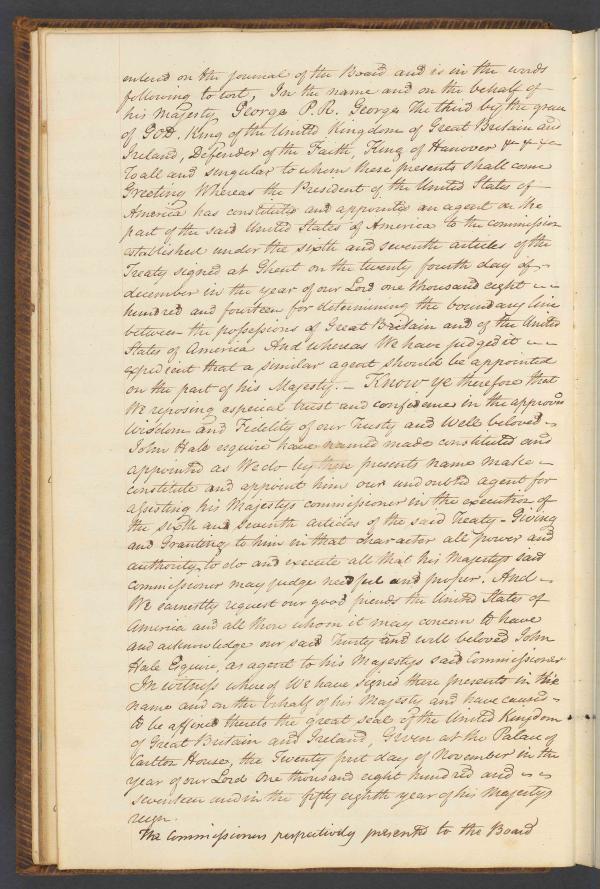 entered on the journal of the Board and is in the words
following to wit, In the name and on the behalf of
his Majesty George P. R. George The third by the grace
of GOD. King of the United Kingdom of Great Britain and
Ireland, Defender of the Faith, King of Hanover &c &c &c
To all and singular to whom these presents shall come
Greeting Whereas the President of the United States of
America has constituted and appointed an agent on the
part of the said United States of America to the commission
established under the sixth and seventh articles of the
Treaty signed at Ghent on the twenty fourth day of
december in the year of our Lord one thousand eight
hundred and fourteen for determining the boundary line
between the possessions of Great Britain and of the United
States of America And whereas We have judged it
expedient that a similar agent should be appointed
on the part of his Majesty. — Know ye therefore that
We reposing especial trust and confidence in the approved
Wisdom and Fidelity of our Trusty and Well beloved
John Hale esquire have named made constituted and
appointed as We do by these presents name make
constitute and appoint him our undoubted agent for
assisting his Majestys commissioner in the execution of
the sixth and seventh articles of the said Treaty - Giving
and Granting to him in that character all power and
authority to do and execute all that his Majestys said
commissioner may judge needful and proper. And
We earnestly request our good friends the United States of
America and all those whom it may concern to have
and acknowledge our said Trusty and well beloved John
Hale Esquire, as agent to his Majestys said Commissioner
In witness whereof We have signed these presents in the
name and on the behalf of his Majesty and have caused
to be affixed thereto the great seal of the United Kingdom
of Great Britain and Ireland, Given at the Palace of
Carlton House, the Twenty first day of November in the
year of our Lord One thousand eight hundred and
seventeen and in the fifty eighth year of his Majestys
reign.
The Commissioners respectively presented to the Board